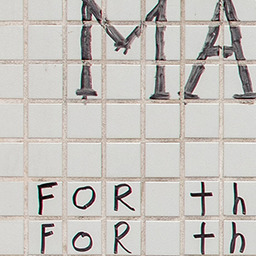 MA
FOR th
FOR th